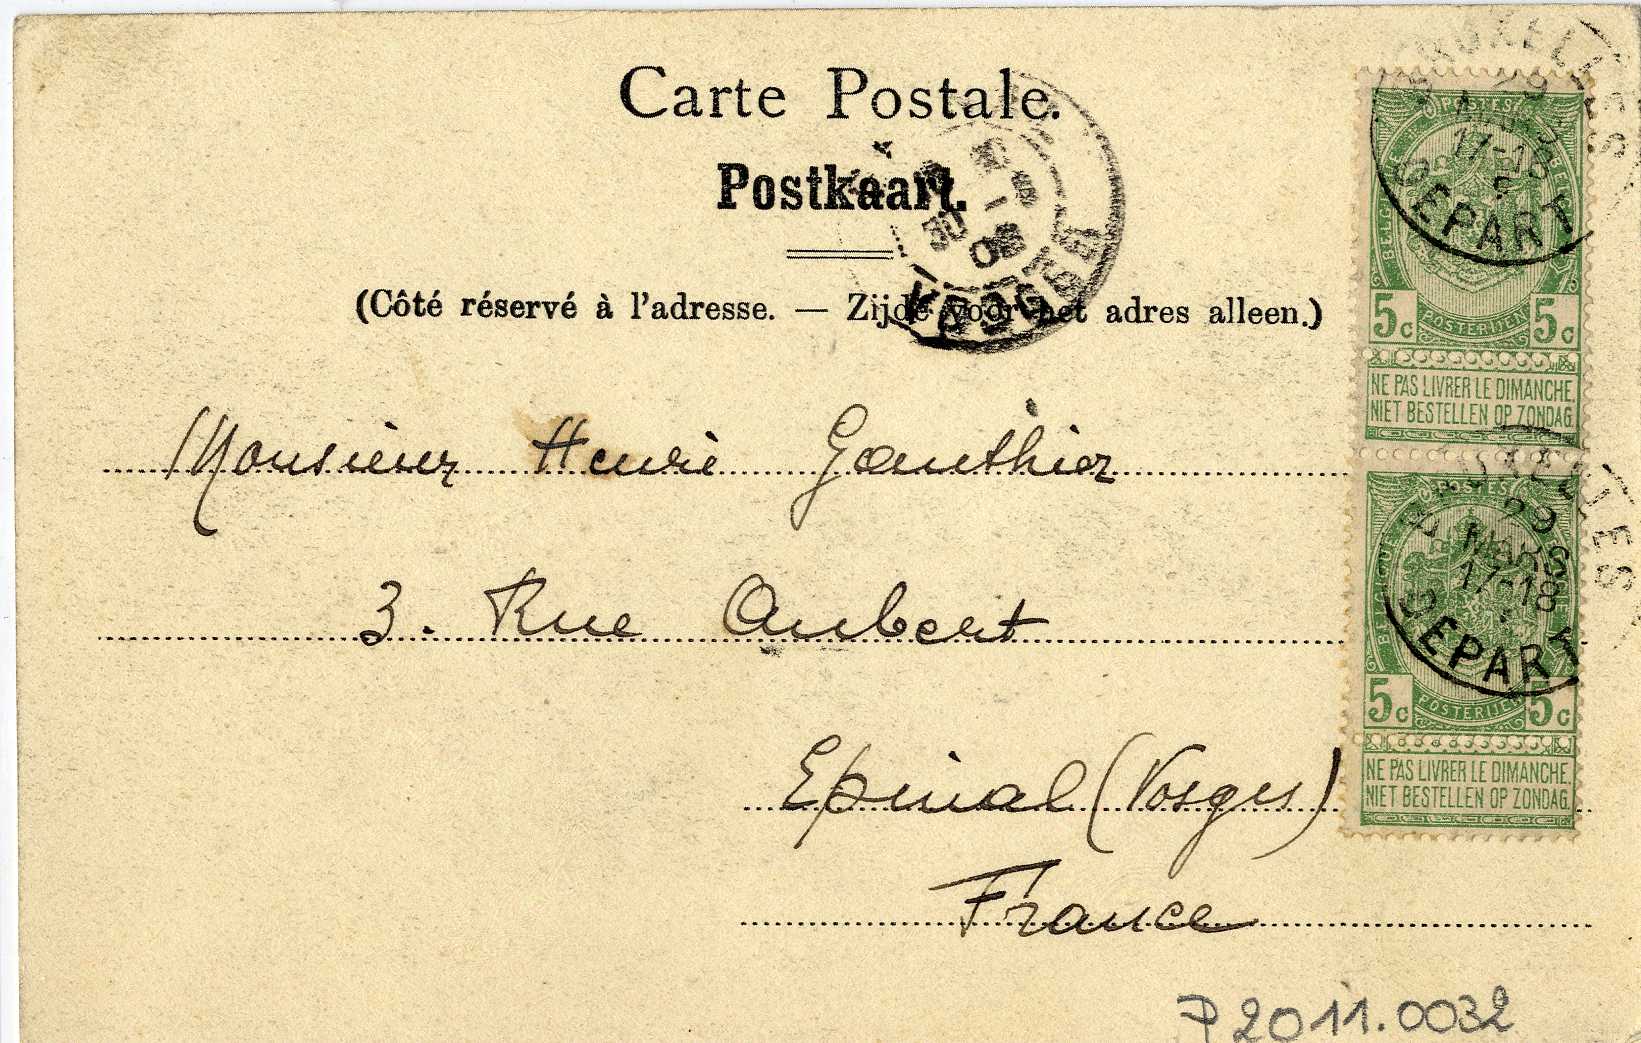 Carte Postale.
Postkaart.
(Côté réservé à l'adresse. — Zijde voor het adres alleen.)
Monsieur Henri Gauthier
3. Rue Aubert
Epinal (Vosges)
France
P2011.0032
BRUXELLES
29
MARS
17-18
DEPART
POSTES
BELGIQUE BELGIE
5c POSTERIJEN 5c
NE PAS LIVRER LE DIMANCHE
NIET BESTELLEN OP ZONDAG.
BRUXELLES
29
MARS
17-18
DEPART
POSTES
BELGIQUE
5c POSTERIJEN 5c
NE PAS LIVRER LE DIMANCHE,
NIET BESTELLEN OP ZONDAG.
30
VOSGES